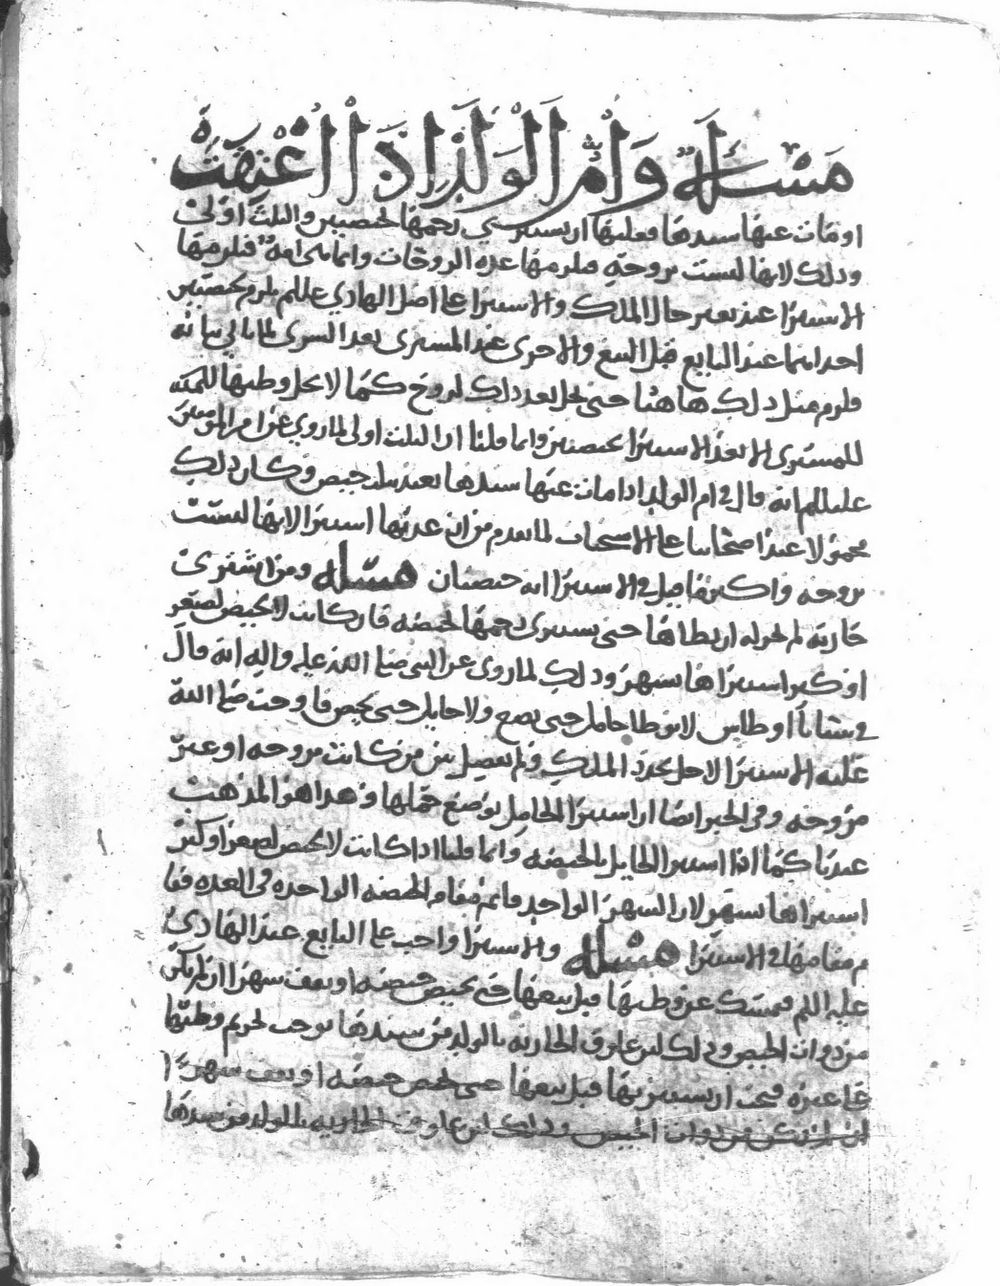 مسئلة وأم الولد إذا اعتقت
او مات عنها سيدها فعليها ان يستبري رحمها بحيضتين والثلث اولى
وذلك لانها ليست بزوجة فيلزمها عدة الزوجات وانما هي امة فيلزمها
الاستبرا عند تغير حال الملك والاستبرا على اصل الهادي علىلم يلزم بحيضتين
احداهما عند البايع قبل البيع والاخرى عند المشتري بعد الشرى لما ياتي بيانه
فلزم مثل ذلك هاهنا حتى تحل بعد ذلك لزوج كما لا يحل وطيها
للمشتري الا بعد الاستبرا بحيضتين وانما قلنا ان الثلث اولى لما روي عن امير المومنين
علىلم انه قال في ام الولد اذا مات عنها سيدها تعتد بثلث حيض وكان ذلك
محمولا عند اصحابنا على الاستحباب لما تقدم من ان عدتها استبرا لانها ليست
بزوجة واكثر ما قيل في الاستبرا انه حيضتان مسئلة ومن اشترى
جارية لم يجز له ان يطاها حتى يستبري رحمها بحيضة فان كانت لا تحيض لصغر
او كبر استبراها بشهر وذلك لما روي عن النبي صلى الله عليه واله انه قال
في سبايا اوطاس لا توطا حامل حتى تضع ولا حايل حتى تحيض فاوجب صلى الله
عليه الاستبرا لاجل تجدد الملك ولم يفصل بين من كانت مزوجة او غير
مزوجة وفي الخبر ايضا ان استبرا الحامل بوضع حملها وهذا هو المذهب
عندنا كما ان استبرا الحايل بالحيضة وانما قلنا اذا كانت لا تحيض لصغر او كبر
استبراها شهر لان الشهر الواحد قايم مقام الحيضة الواحدة في العدة فقا
م مقامها في الاستبرا مسئلة والاستبرا واجب على البايع عند الهادي
عليه اللم فيمسك عن وطيها قبل بيعها حتى تحيض حيضة او يقف شهرا ان لم تكن
من ذوات الحيض وذلك لان علوق الجارية بالولد من سيدها يوجب تحريم وطيها
على غيره فيجب ان يستبريها قبل بيعها حتى تحيض حيضة او يقف شهرا
ان لم تكن من ذوات الحيض وذلك لان علوق الجارية بالولد من سيدها